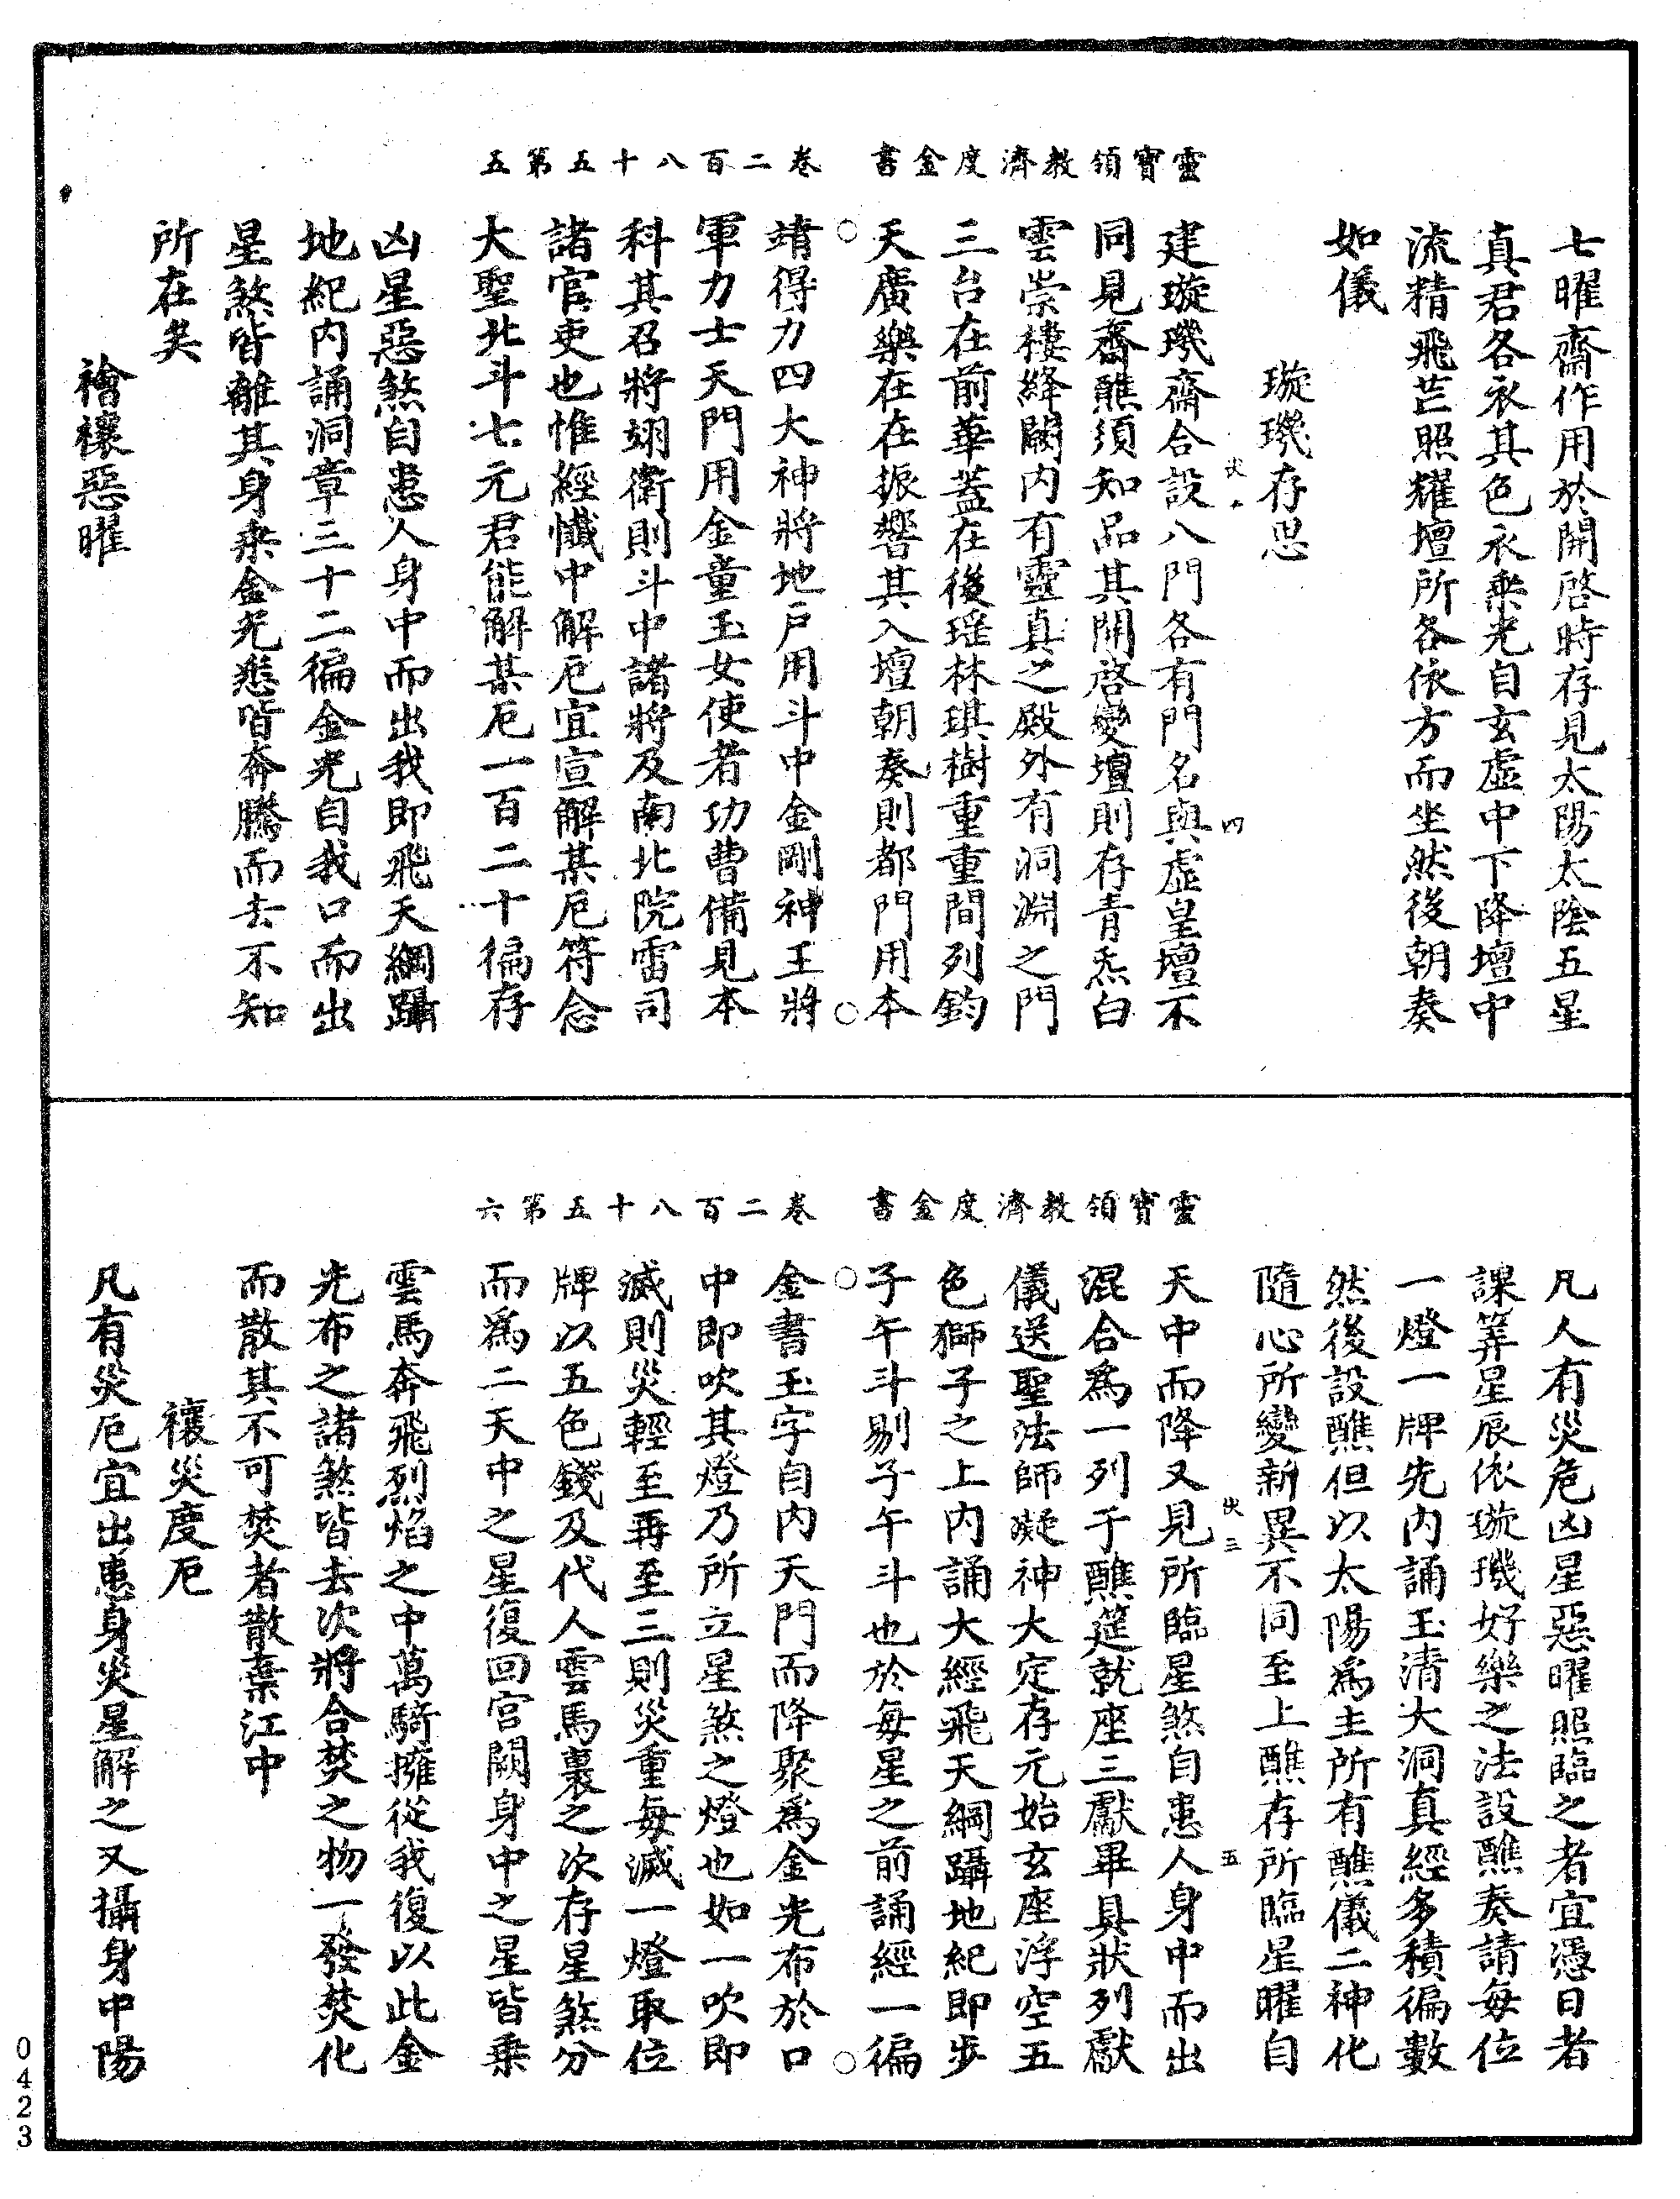 七曜齋作用於開啓時存見太陽太陰五星
真君各衣其色衣乘光自玄虛中下降壇中
流精飛芒照耀壇所各依方而坐然後朝奏
如儀
璇璣存思
建璇璣齋合設八門各有門名與虛皇壇不
同見齋醮須知品其開啓變壇則存青炁白
雲崇樓絳闕內有靈真之殿外有洞淵之門
三台在前華蓋在後瑶林琪樹重重間列鈞
天廣樂在在振響其入壇朝奏則都門用本
靈寶領教濟度金書
卷二百八十五第五
四
靖得力四大神將地户用斗中金剛神王將
軍力士天門用金童玉女使者功曹備見本
科其召將翊衛則斗中諸將及南北院雷司
諸官吏也惟經懺中解厄宜宣解某厄符念
大聖北斗七元君能解某厄一百二十徧存
凶星惡煞自患人身中而出我即飛天綱躡
地紀内誦洞章三十二徧金光自我口而出
星煞皆離其身乘金光悲皆奔騰而去不知
所在矣
禬禳惡曜
凡人有災危凶星惡曜照臨之者宜憑日者
課筭星辰依璇璣好樂之法設醮奏請每位
一燈一牌先内誦玉清大洞真經多積徧數
然後設醮但以太陽爲主所有醮儀二神化
隨心所變新異不同至上醮存所臨星曜自
天中而降又見所臨星煞自患人身中而出
混合爲一列于醮筵就座三獻畢具狀列獻
儀送聖法師凝神大定存元始玄座浮空五
色獅子之上内誦大經飛天綱躡地紀即步
子午斗剔子午斗也於每星之前誦經一徧
靈寶領教濟度金書
卷二百八十五第六
三
五
金書玉字自内天門而降聚爲金光布於口
中即吹其燈乃所立星煞之燈也如一吹即
滅則災輕至再至三則災重每滅一燈取位
牌以五色錢及代人雲馬裏之次存星煞分
而爲二天中之星復回宮闕身中之星皆乘
雲馬奔飛烈焰之中萬騎擁從我復以此金
光布之諸煞皆去次將合焚之物一發焚化
而散其不可焚者散棄江中
禳災度厄
凡有災厄宜出患身災星解之又攝身中陽
0423